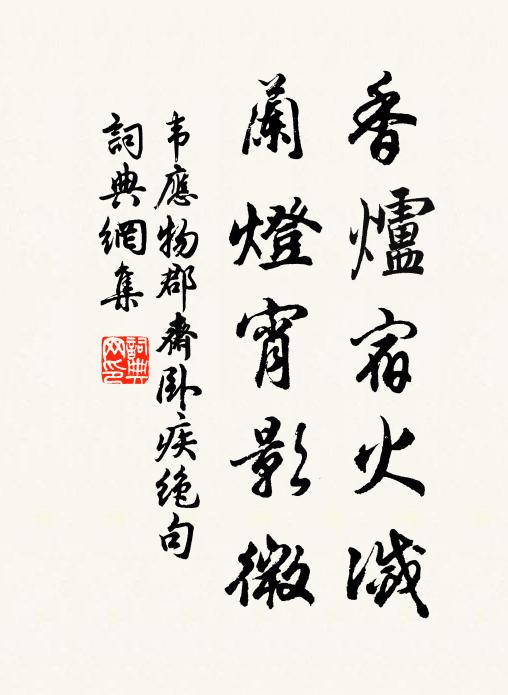 香爐宿火滅
蘭燈宵影微
韦應物郡齋卧疾绝句
詞典網集
詞典網印